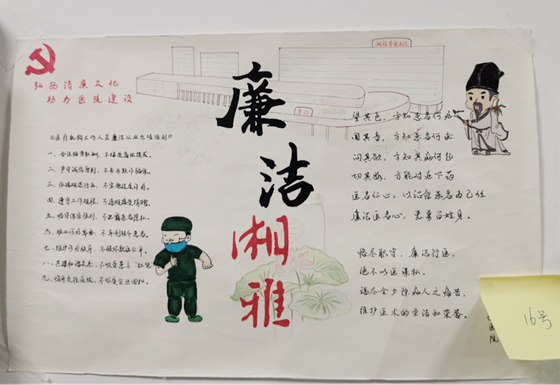 弘扬清廉文化
助力医院建设
《医疗机构工作人员廉洁从业九项准则》
一、合法按劳取酬，不接受商业提成。
二、严守诚信原则，不参与欺诈骗保。
三、依据规范行医，不实施过度诊疗。
四、遵守工作规程，不违规接受捐赠。
五、恪守保密准则，不泄露患者隐私。
六、服从诊疗需要，不牟利转介患者。
七、维护诊疗秩序，不破坏就医公平。
八、共建和谐关系，不收受患方“红包”
九、恪守交往底线，不收受企业回扣。
廉洁湘雅
望其色，方知患者何
闻其音，方知患者何
问其欲，方知其病何起
切其脉，方能对症下药
医者仁心，以治愈患者为己任
廉洁医者心，
恪尽职守，廉洁行医，
绝不以医谋私。
竭尽全力除病人之痛苦，
维护医术的圣洁和荣誉。
16号